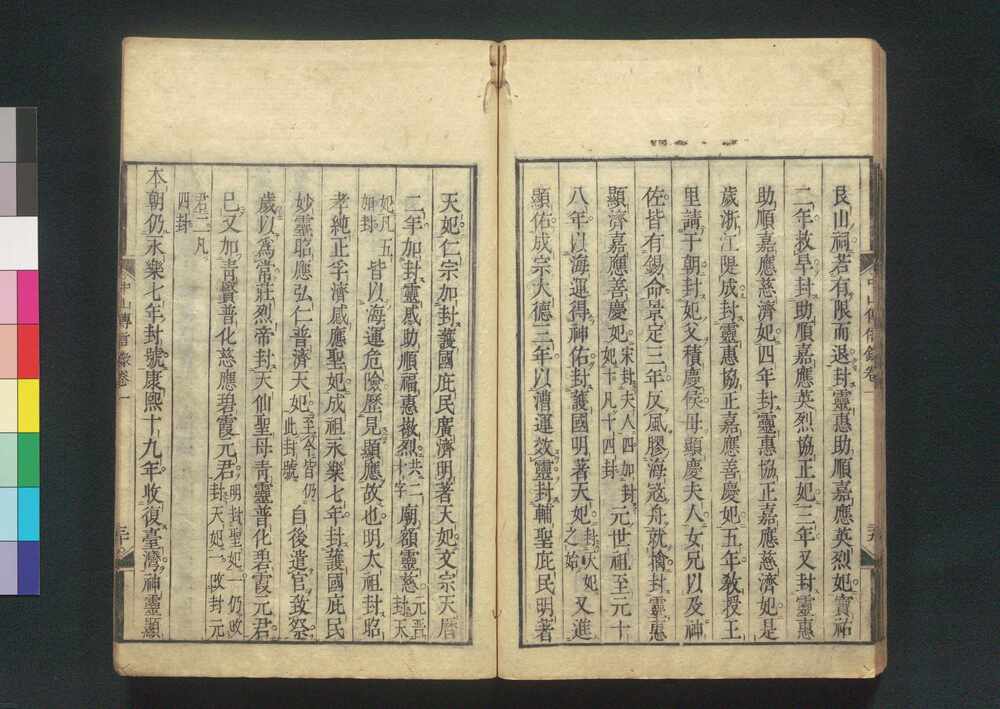 艮山祠若有限而退封靈惠助順嘉應英烈妃寶祐
二年救旱封助順嘉應英烈協正妃三年又封靈惠
助順嘉應慈濟妃四年封靈惠協正嘉應慈濟妃是
歲浙江隄成封靈惠協正嘉應善慶妃五年教授王
里請于朝封妃父積慶侯母顯慶夫人女兄以及神
佐皆有錫命景定三年反風膠海寇舟就擒封靈惠
顯濟嘉應善慶妃宋封夫人四加封妃十凡十四封元世祖至元十
八年以海運得神佑封護國明著天妃封天妃之始又進
顯佑成宗大德三年以漕運效靈封輔聖庇民明著
中山傳信錄卷一
天妃仁宗加封護國庇民廣濟明著天妃文宗天曆
二年加封靈感助順福惠徽烈共二十字廟額靈慈元晋封天妃凡五加封
皆以海運危險歷見顯應故也明太祖封昭
孝純正孚濟感應聖妃成祖永樂七年封護國庇民
妙靈昭應弘仁普濟天妃至今皆仍此封號自後遣官致祭
歲以爲常莊烈帝封天仙聖母青靈普化碧霞元君
已又加青賢普化慈應碧霞元君明封聖妃一仍改封天妃一改封元君二凡四封
本朝仍永樂七年封號康熙十九年收復臺灣神靈顯
中山傳信錄卷一